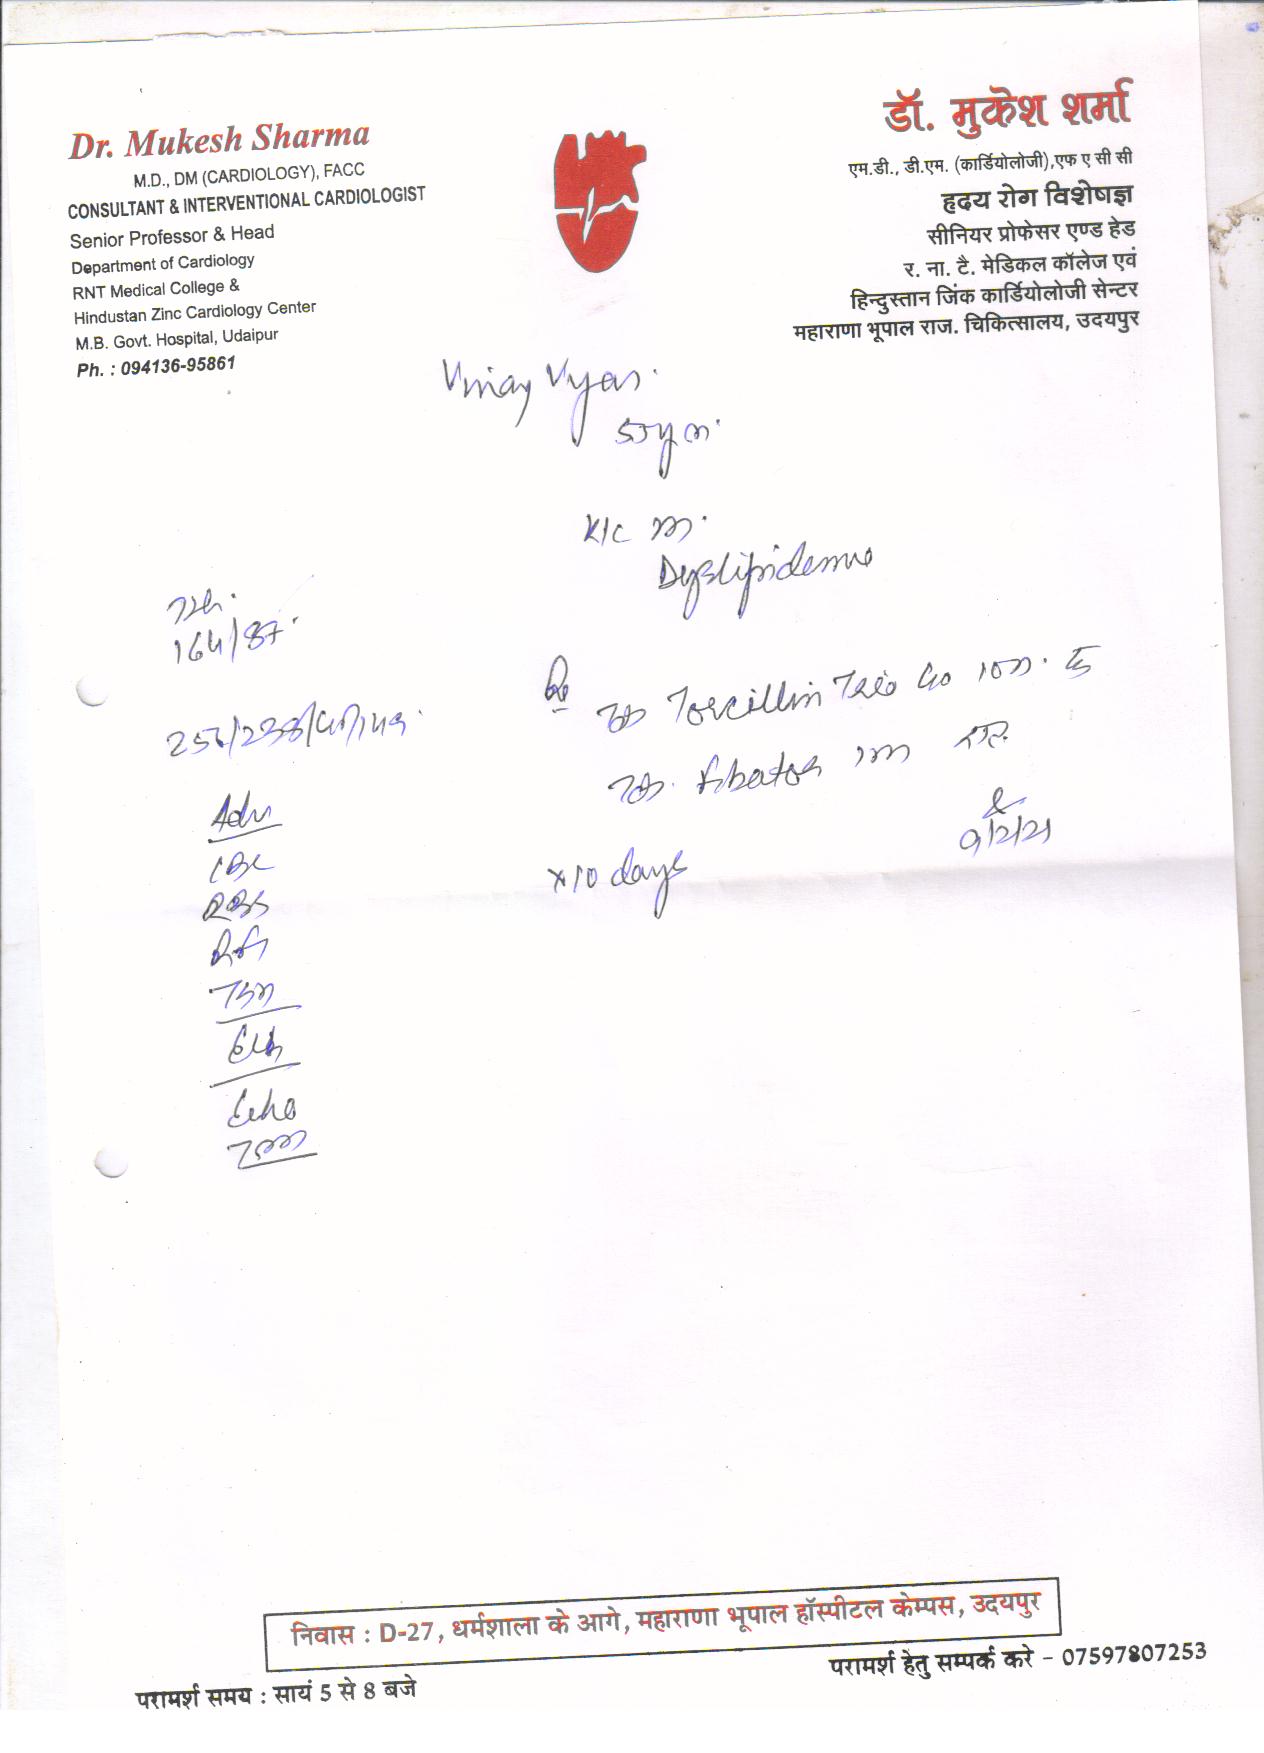 Dr. Mukesh Sharma
M.D., DM (CARDIOLOGY), FACC
CONSULTANT & INTERVENTIONAL CARDIOLOGIST
Senior Professor & Head
Department of Cardiology
RNT Medical College &
Hindustan Zinc Cardiology Center
M.B. Govt. Hospital, Udaipur
Ph. : 094136-95861
डॉ. मुकेश शर्मा
एम.डी., डी.एम. (कार्डियोलोजी),एफ ए सी सी
हृदय रोग विशेषज्ञ
सीनियर प्रोफेसर एण्ड हेड
र. ना. टै. मेडिकल कॉलेज एवं
हिन्दुस्तान जिंक कार्डियोलोजी सेन्टर
महाराणा भूपाल राज. चिकित्सालय, उदयपुर
Vinay Vyas
K/C
Dyslipidemia
164/87
Adv
CBC
RBS
Echo
x10 days
9/2/21
निवास : D-27, धर्मशाला के आगे, महाराणा भूपाल हॉस्पीटल केम्पस, उदयपुर
परामर्श समय : सायं 5 से 8 बजे
परामर्श हेतु सम्पर्क करे – 07597807253